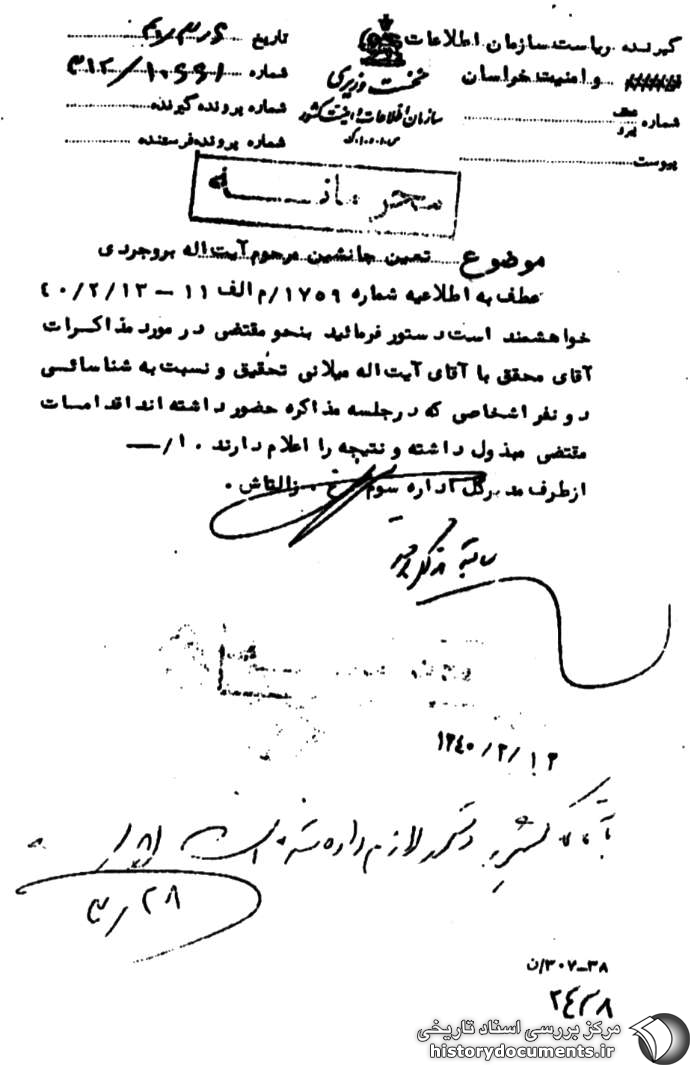 گیرنده ریاست سازمان اطلاعات
و امنیت خراسان
شماره
پیوست
نخست وزیری
سازمان اطلاعات و امنیت کشور
تاریخ ۴۰/۳/۶
شماره ۳۱۲/۱۰۶۶۱
شماره پرونده گیرنده
شماره پرونده فرستنده
محرمانه
موضوع تعیین جانشین مرحوم آیت اله بروجردی
عطف به اطلاعیه شماره ۱۷۵۹/م الف ۱۱ – ۴۰/۲/۱۳
خواهشمند است دستور فرمائید بنحو مقتضی در مورد مذاکرات
آقای محقق با آقای آیت اله میلانی تحقیق و نسبت به شناسائی
دو نفر اشخاصی که در جلسه مذاکره حضور داشته اند اقدامات
مقتضی مبذول داشته و نتیجه را اعلام دارند . ۱/—
از طرف مدیرکل اداره سوم
۱۳۴۰/۳/۱۲
دستور لازم داده شده است
۲۸/۳
۳۰۷-۳۸/ن
۲۴۳۸
مرکز بررسی اسناد تاریخی
historydocuments.ir